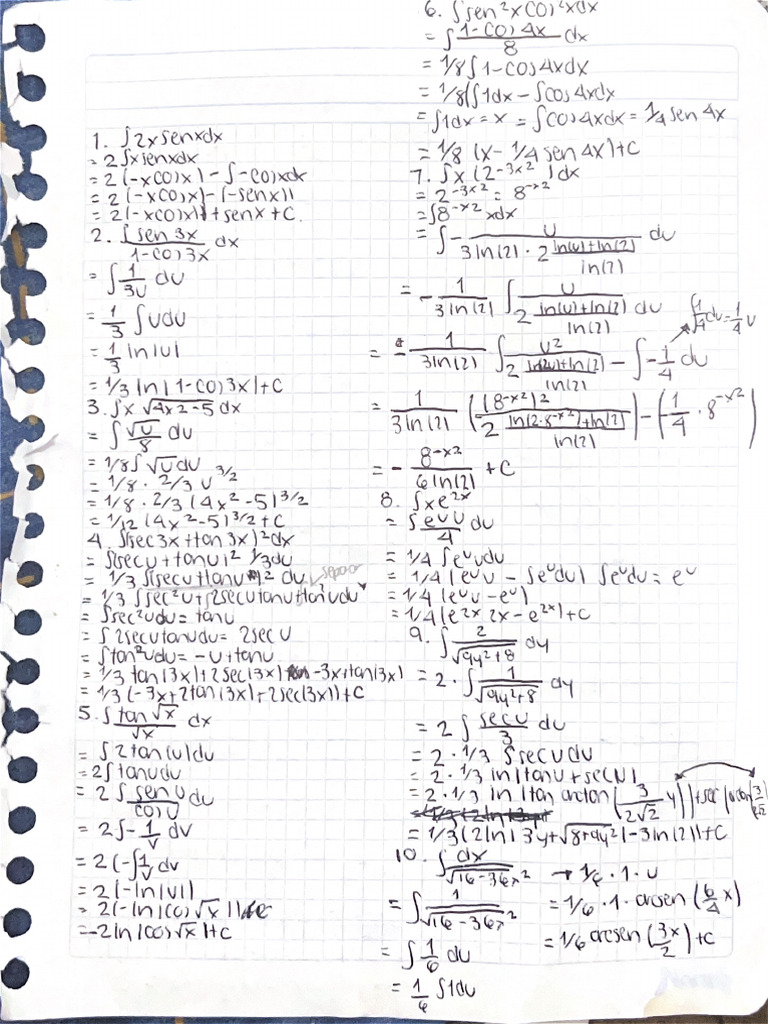 1. ∫2xsenxdx
= 2∫xsenxdx
= 2(-xcosx) - ∫-cosxdx
= 2(-xcosx)-(-senx))
= 2(-xcosx))+senx+C.
2. ∫ sen 3x / 1-cos3x dx
= ∫ 1/3u du
= 1/3 ∫udu
= 1/3 ln|u|
= 1/3 ln|1-cos3x|+C
3. ∫x √4x2-5 dx
= ∫ √u/8 du
= 1/8∫ √u du
= 1/8 · 2/3 u 3/2
= 1/8 · 2/3 (4x²-5)3/2
= 1/12 (4x²-5)3/2+C
4. ∫(sec3x+tan3x)²dx
= ∫(secu+tanu)² 1/3du
= 1/3 ∫(secu+tanu)² du
= 1/3 ∫sec²u+∫2secutanu+tan²udu
= ∫sec²udu= tanu
= ∫2secutanudu= 2secu
= ∫tan²udu= -u+tanu
= 1/3 tan(3x)+2sec(3x) -3x+tan(3x)
= 1/3 (-3x+2tan(3x)+2sec(3x))+C
5. ∫ tan√x / √x dx
= ∫2tan(u)du
= 2∫tanudu
= 2∫ senu/cosu du
= 2∫- 1/v dv
= 2(-∫1/v dv
= 2(-ln|v|)
= 2(-ln|cos√x|)
= -2ln|cos√x|+C
6. ∫sen²xcos²xdx
= ∫ 1-cos4x / 8 dx
= 1/8∫1-cos4xdx
= 1/8(∫1dx - ∫cos4xdx
= ∫1dx=x = ∫cos4xdx= 1/4sen4x
= 1/8 (x- 1/4sen4x)+C
7. ∫x(2-3x2)dx
= 2-3x2 = 8-x2
= ∫8-x2 xdx
= ∫- u / 3ln(2)·2 ln(u)+ln(2) / ln(2) du
= - 1/3ln(2) ∫ u / 2 ln(u)+ln(2) / ln(2) du
∫1/4du=1/4u
= - 1/3ln(2) ∫ u2 / 2 ln(2u)+ln(2) / ln(2) - ∫- 1/4 du
= 1/3ln(2) ((8-x2)2 / 2 ln(2·8-x2)+ln(2) / ln(2)) - (1/4 · 8-x2)
= - 8-x2 / 6ln(2) + C
8. ∫xe2x
= ∫ euu/4 du
= 1/4 ∫euudu
= 1/4 (euu - ∫eudu) ∫eudu = eu
= 1/4(euu-eu)
= 1/4(e2x 2x - e2x)+C
9. ∫ 2/√9y²+8 dy
= 2·∫ 1/√9y²+8 dy
= 2∫ secu/3 du
= 2·1/3 ∫secudu
= 2·1/3 ln|tanu+secu|
= 2·1/3 ln|tan arctan(3/2√2 y))+sec(arctan(3/2√2
= 1/3(2ln|3y+√8+9y²|-3ln(2))+C
10. ∫ dx/√16-36x² → 1/6·1·u
= ∫ 1/√16-36x²
= ∫ 1/6 du
= 1/6 ∫1du
= 1/6·1·arcsen (6/4x)
= 1/6 arcsen (3x/2)+C